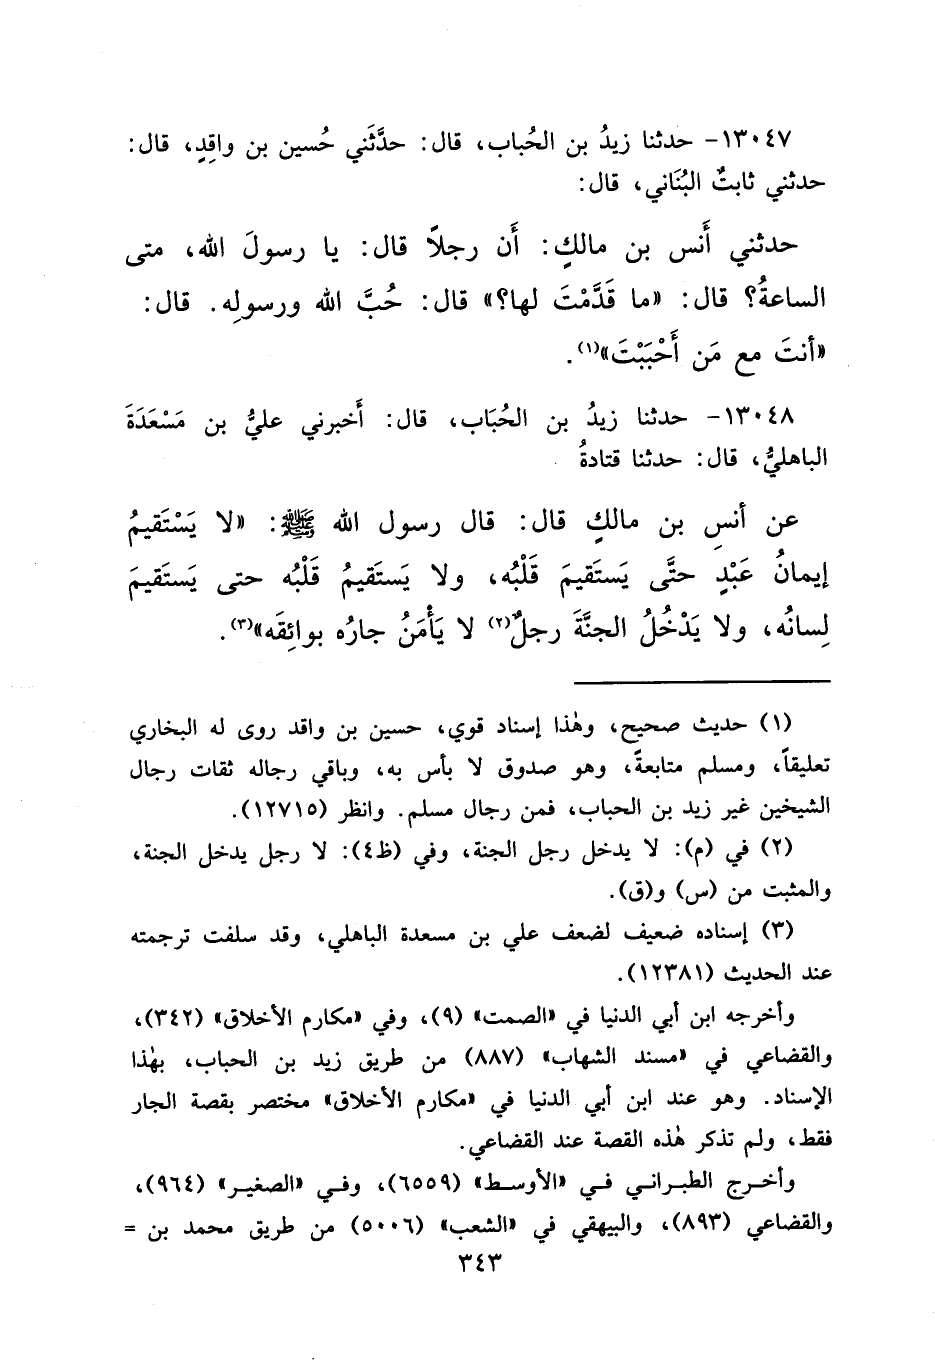 ١٣٠٤٧- حدثنا زيدُ بن الحُباب، قال: حدَّثَني حُسين بن واقِدٍ، قال:
حدثني ثابتٌ البُنَاني، قال:
حدثني أَنس بن مالكٍ: أَن رجلاً قال: يا رسولَ الله، متى
الساعةُ؟ قال: «ما قَدَّمْتَ لها؟» قال: حُبَّ الله ورسولِه. قال:
«أنتَ مع مَن أَحْبَبْتَ»(١).
١٣٠٤٨- حدثنا زيدُ بن الحُبَاب، قال: أَخبرني عليُّ بن مَسْعَدَةَ
الباهليُّ، قال: حدثنا قتادةُ
عن أنسِ بن مالكٍ قال: قال رسول الله ﷺ: «لا يَسْتَقيمُ
إيمانُ عَبْدٍ حتَّى يَستَقيمَ قَلْبُه، ولا يَستَقيمُ قَلْبُه حتى يَستَقيمَ
لِسانُه، ولا يَدْخُلُ الجنَّةَ رجلٌ(٢) لا يَأْمَنُ جارُه بوائِقَه»(٣).
(١) حديث صحيح، وهٰذا إسناد قوي، حسين بن واقد روى له البخاري
تعليقاً، ومسلم متابعةً، وهو صدوق لا بأس به، وباقي رجاله ثقات رجال
الشيخين غير زيد بن الحباب، فمن رجال مسلم. وانظر (١٢٧١٥).
(٢) في (م): لا يدخل رجل الجنة، وفي (ظ٤): لا رجل يدخل الجنة،
والمثبت من (س) و(ق).
(٣) إسناده ضعيف لضعف علي بن مسعدة الباهلي، وقد سلفت ترجمته
عند الحديث (١٢٣٨١).
وأخرجه ابن أبي الدنيا في «الصمت» (٩)، وفي «مكارم الأخلاق» (٣٤٢)،
والقضاعي في «مسند الشهاب» (٨٨٧) من طريق زيد بن الحباب، بهٰذا
الإسناد. وهو عند ابن أبي الدنيا في «مكارم الأخلاق» مختصر بقصة الجار
فقط، ولم تذكر هٰذه القصة عند القضاعي.
وأخرج الطبراني في «الأوسط» (٦٥٥٩)، وفي «الصغير» (٩٦٤)،
والقضاعي (٨٩٣)، والبيهقي في «الشعب» (٥٠٠٦) من طريق محمد بن =
٣٤٣